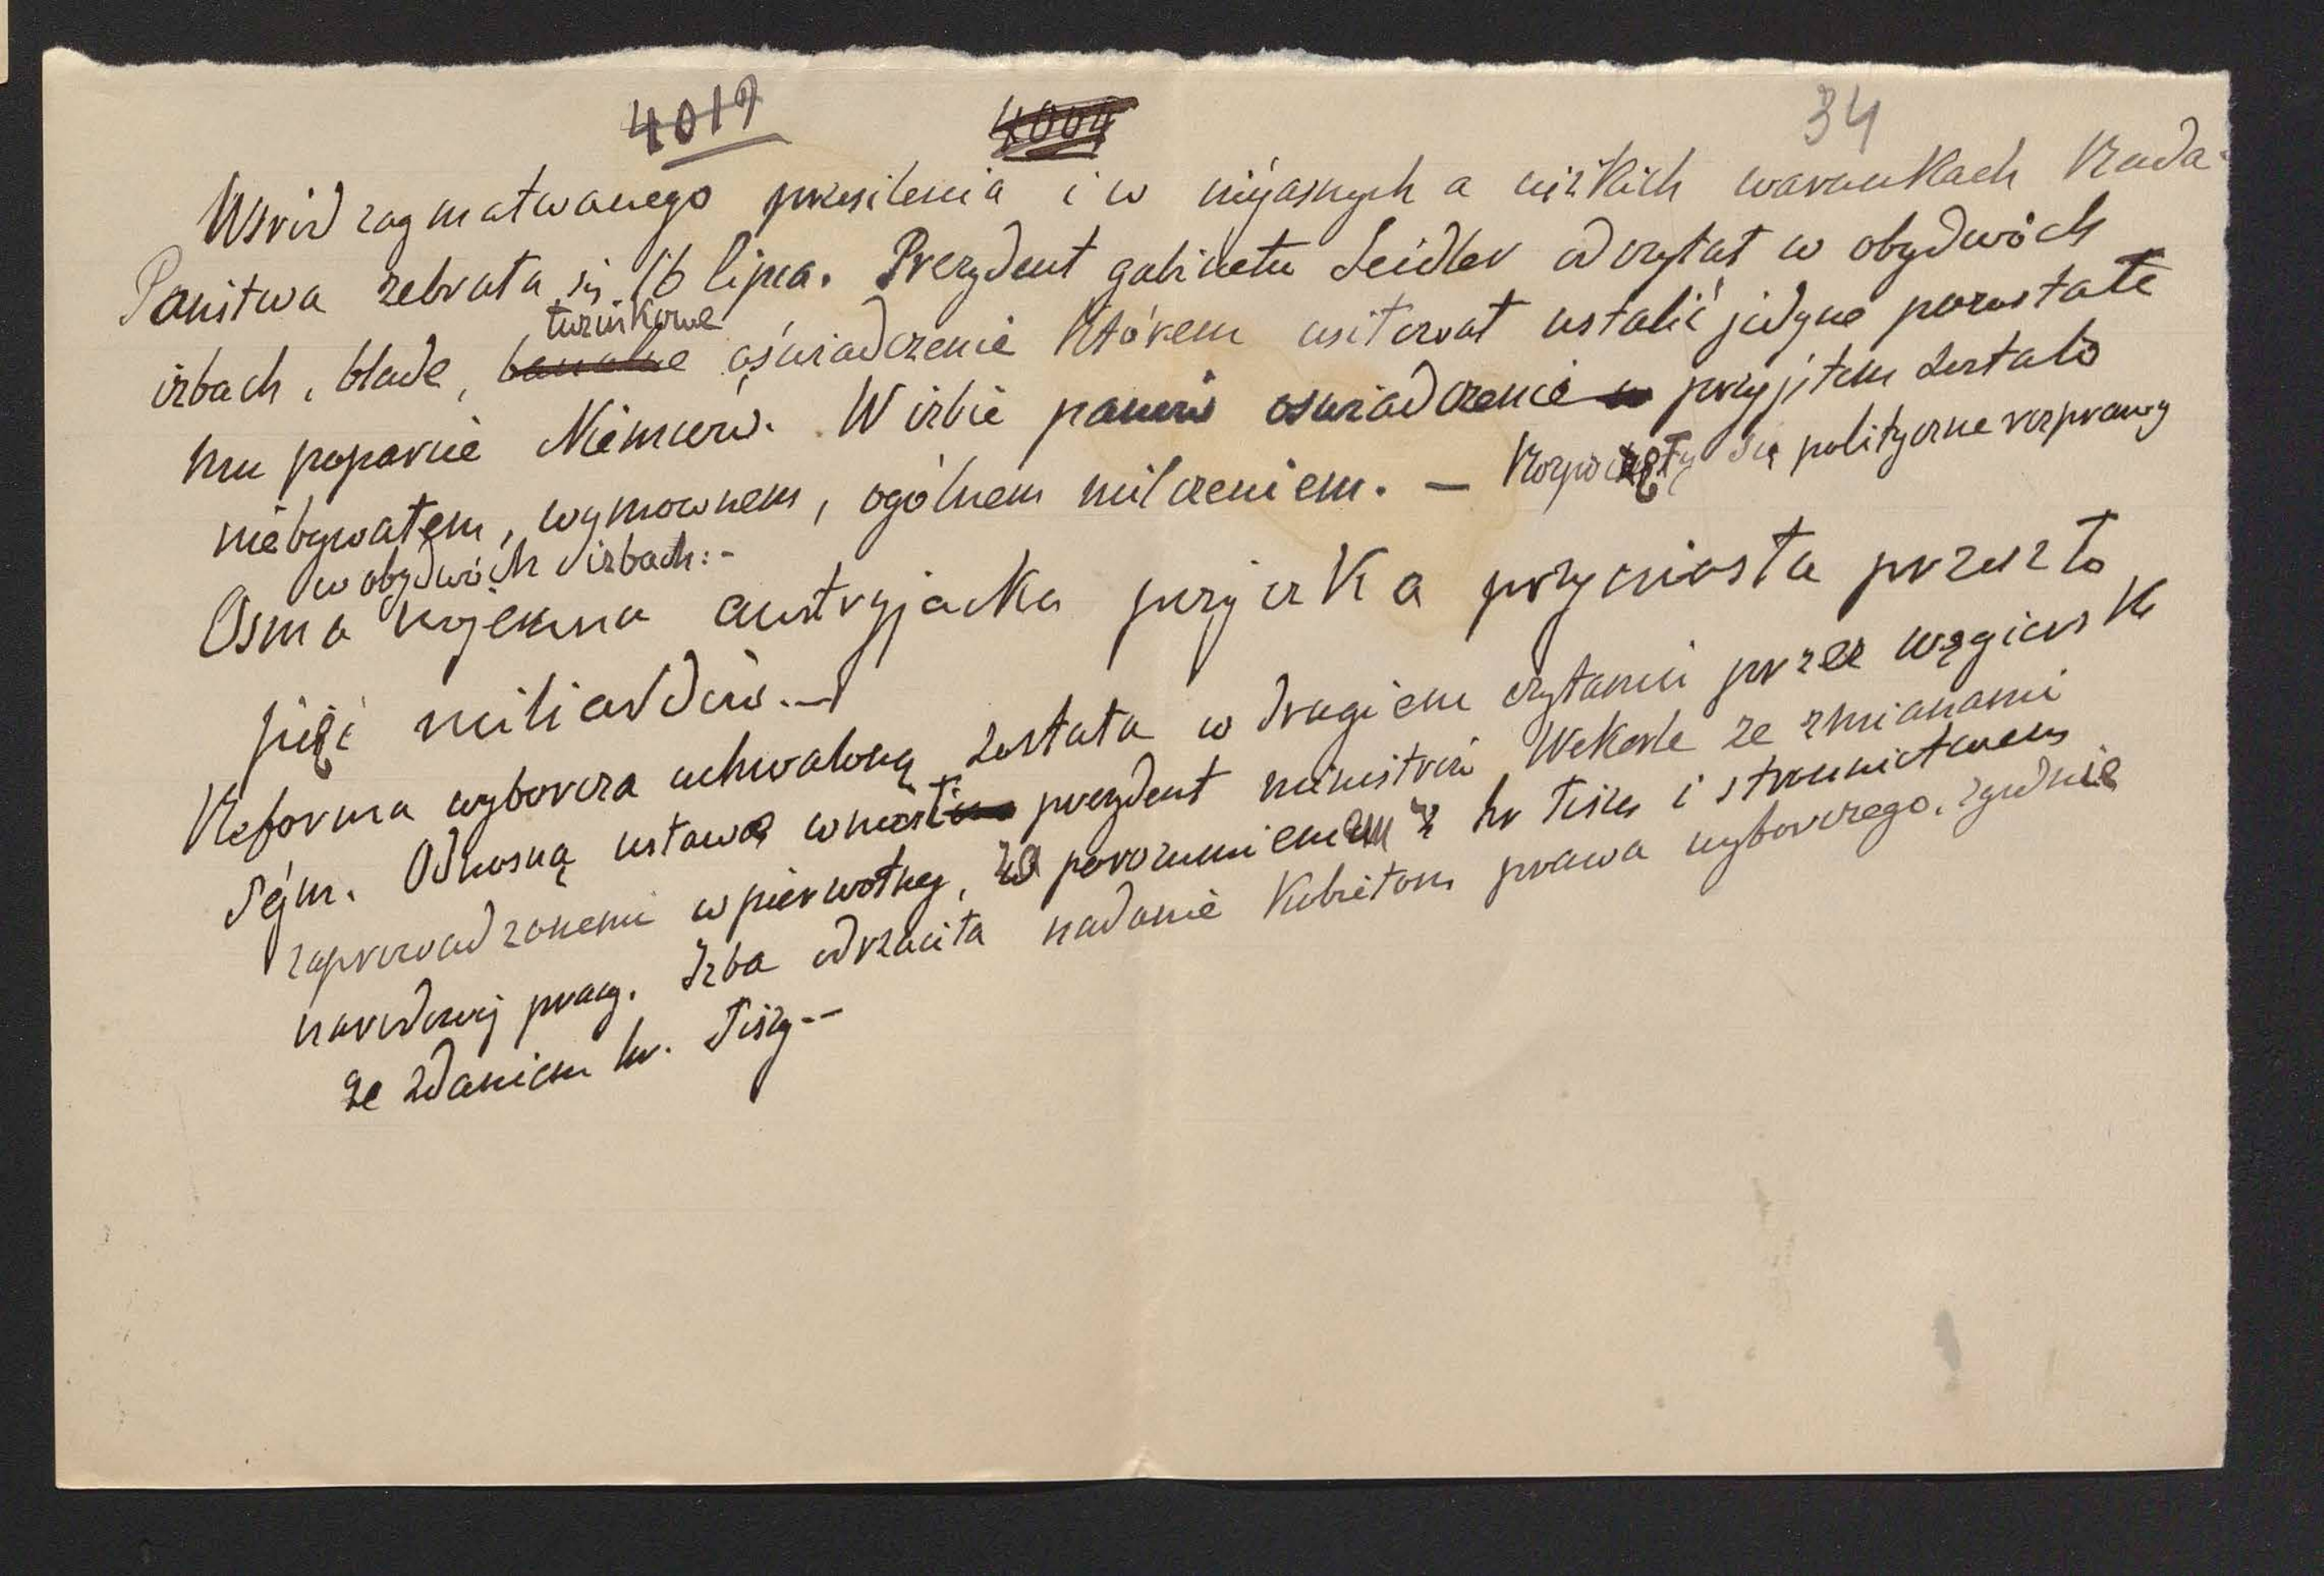 4019 4004 34
Wśród zagmatwanego przesilenia i w niejasnych a ciężkich warunkach Rada
Państwa zebrała się 16 lipca. Prezydent gabinetu Seidler odczytał w obydwóch
turnikowe
izbach, blade, banalne oświadczenie którem usiłował ustalić jedyne pozostałe
mu poparcie Niemców. W izbie panów oświadczenie przyjętem zostało
niebywałem, wymownem, ogólnem milczeniem. — Rozpoczęły się polityczne rozprawy
w obydwóch izbach: -
Osma wojenna austryjacka pożyczka przyniosła przeszło
pięć miliardów. —
Reforma wyborcza uchwaloną została w drugiem czytaniu przez węgierski
Sejm. Odnośną ustawę wniósł prezydent ministrów Wekerle ze zmianami
zaprowadzonemi w pierwotnej, za porozumieniem z hr Tiszą i stronnictwem
narodowej pracy. Izba odrzuciła nadanie kobietom prawa wyborczego, zgodnie
ze zdaniem hr. Tiszy --